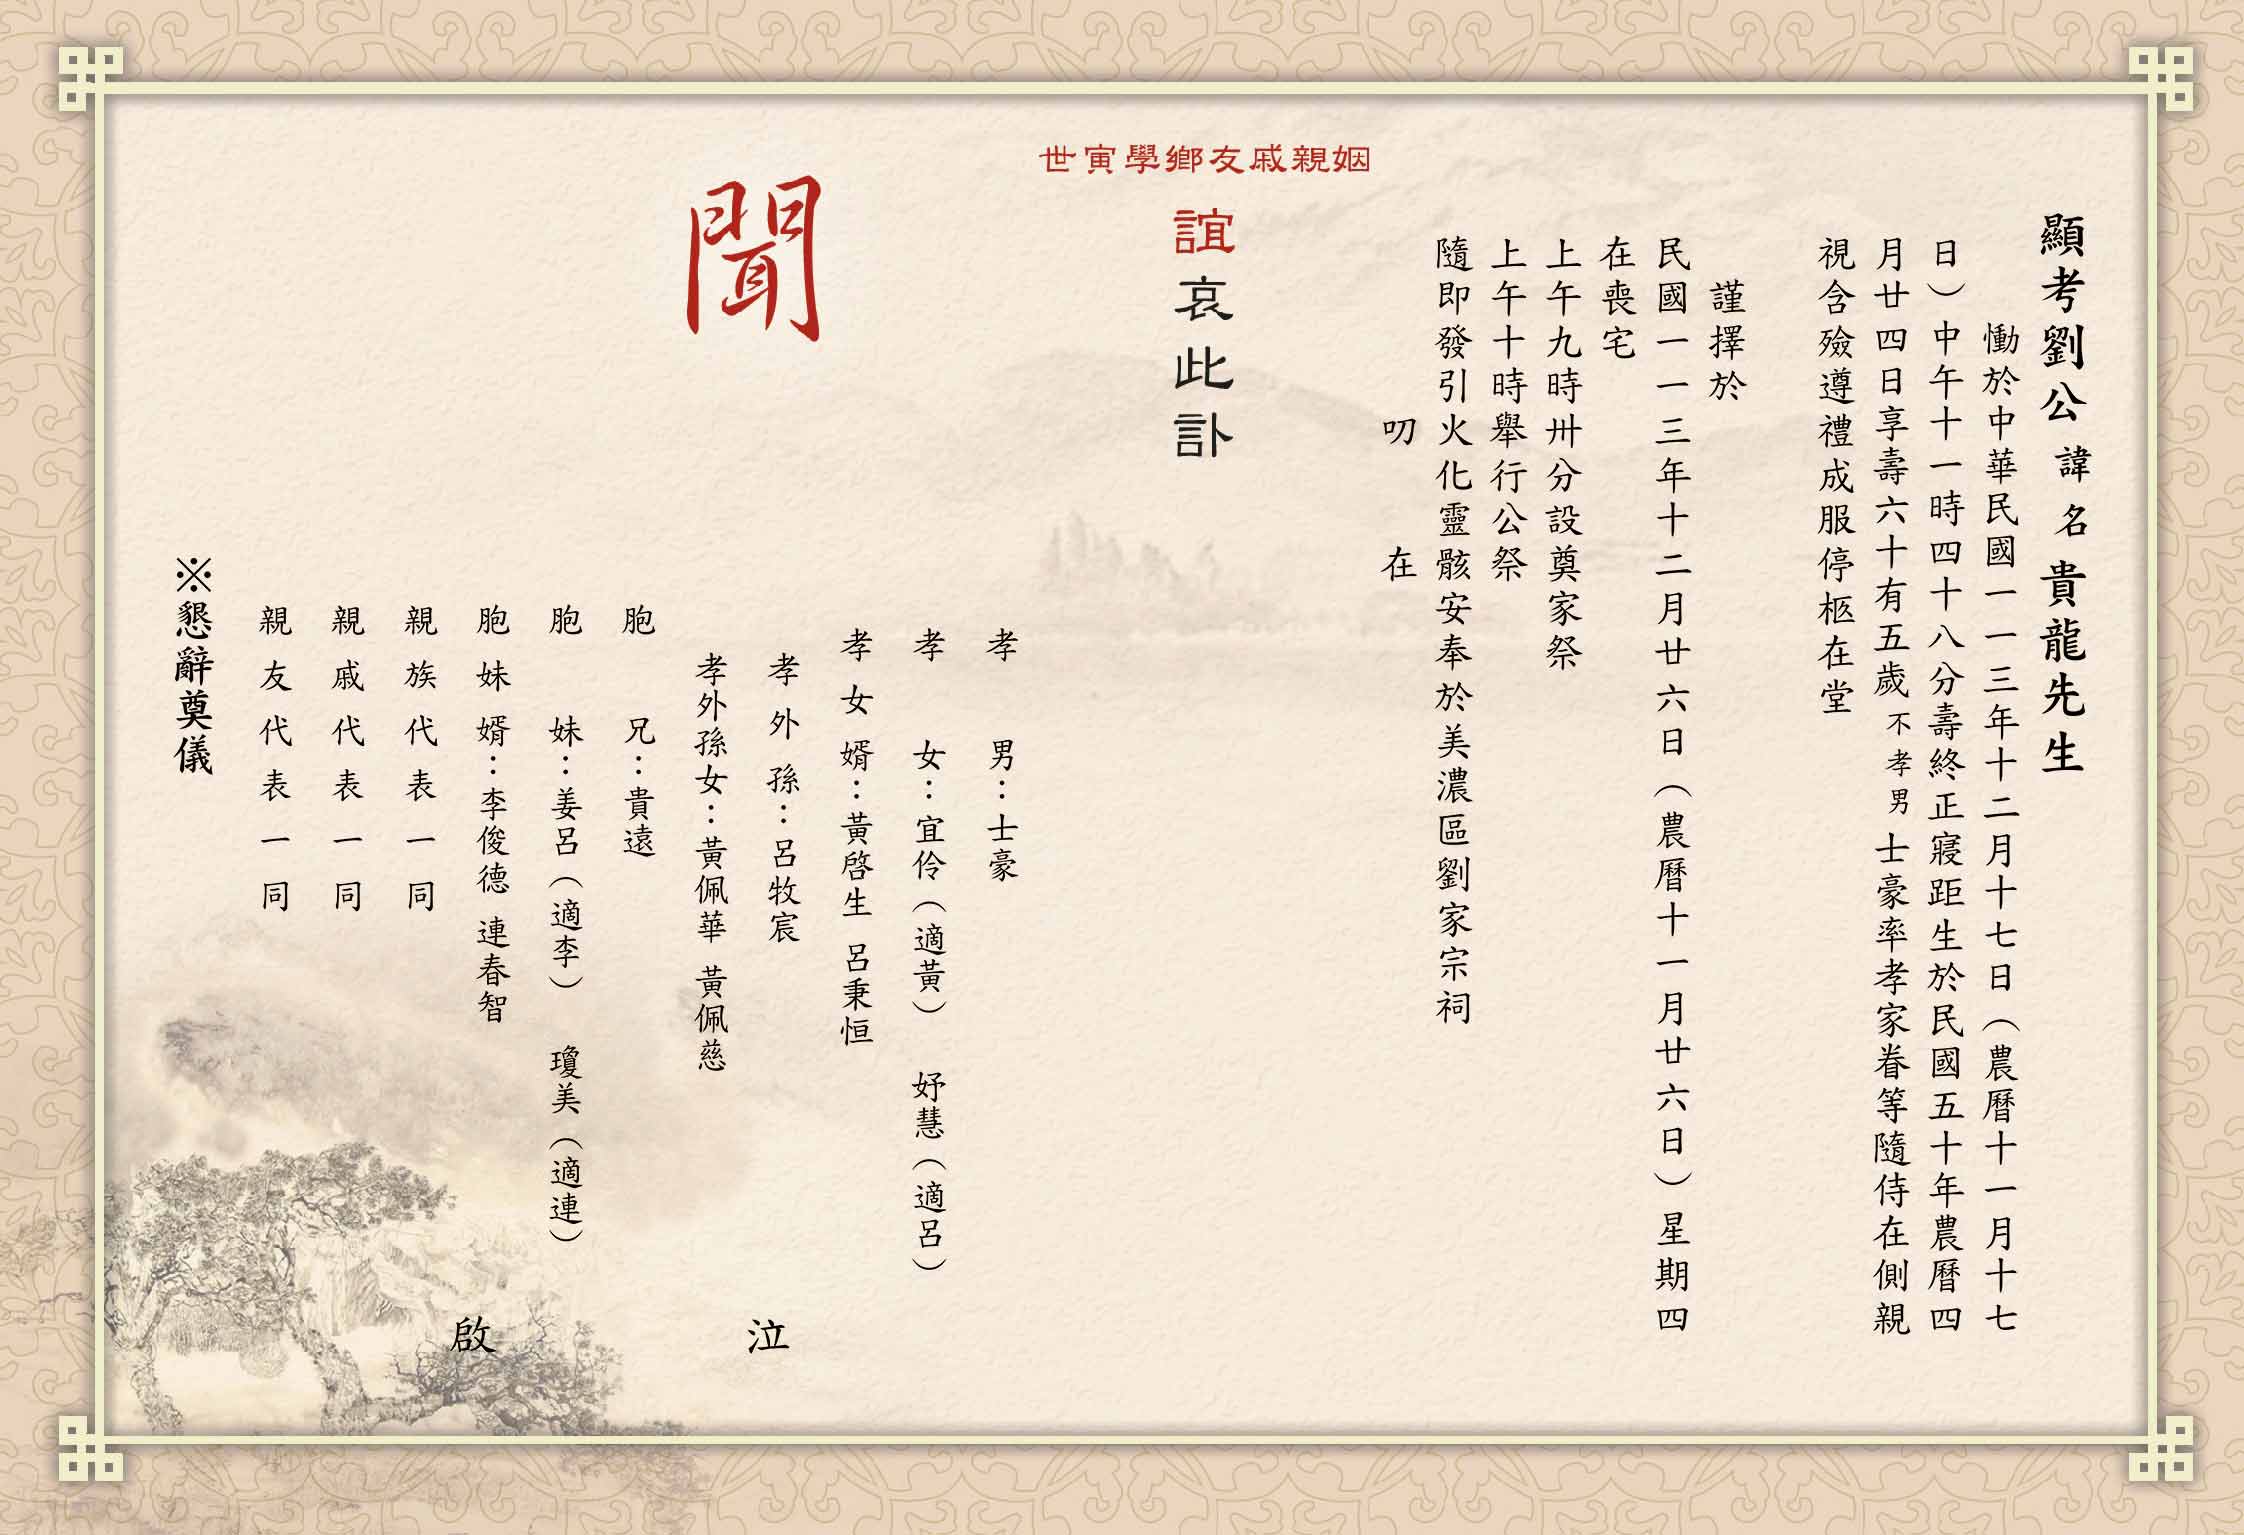 顯考劉公諱名貴龍先生
慟於中華民國一一三年十二月十七日（農曆十一月十七
日）中午十一時四十八分壽終正寢距生於民國五十年農曆四
月廿四日享壽六十有五歲不孝男士豪率孝家眷等隨侍在側親
視含殮遵禮成服停柩在堂
謹擇於
民國一一三年十二月廿六日（農曆十一月廿六日）星期四
在喪宅
上午九時卅分設奠家祭
上午十時舉行公祭
隨即發引火化靈骸安奉於美濃區劉家宗祠
叨 在
姻親戚友鄉學寅世
誼哀此訃
聞
孝 男：士豪
孝 女：宜伶（適黃） 妤慧（適呂）
孝女婿：黃啓生 呂秉恒
孝外孫：呂牧宸
孝外孫女：黃佩華 黃佩慈
胞 兄：貴遠
胞 妹：姜呂（適李） 瓊美（適連）
胞妹婿：李俊德 連春智
親族代表一同
親戚代表一同
親友代表一同
泣 啟
※懇辭奠儀